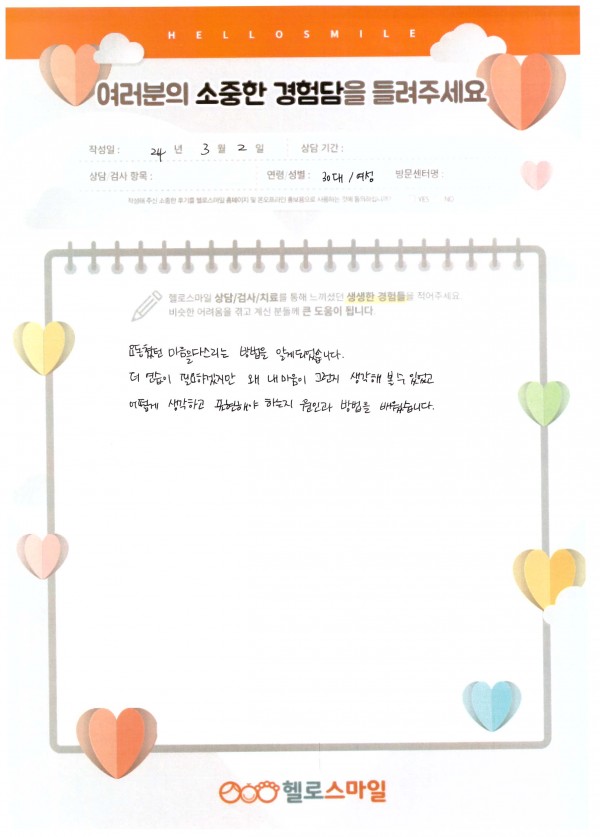 HELLOSMILE
여러분의 소중한 경험담을 들려주세요
작성일 : 24 년 3 월 2 일 상담 기간 :
상담/검사 항목 : 연령/성별 : 30대 / 여성 방문센터명 :
작성해 주신 소중한 후기를 헬로스마일 홈페이지 및 온오프라인 홍보용으로 사용하는 것에 동의하십니까? ( YES NO
헬로스마일 상담/검사/치료를 통해 느끼셨던 생생한 경험들을 적어주세요
비슷한 어려움을 겪고 계신 분들께 큰 도움이 됩니다.
마음을다스리는 방법을 알게되었습니다.
더 연습이 필요하겠지만 왜 내마음이 그런지 생각해 볼 수 있었고
어떻게 생각하고 표현해야 하는지 원인과 방법을 배웠습니다.
헬로스마일